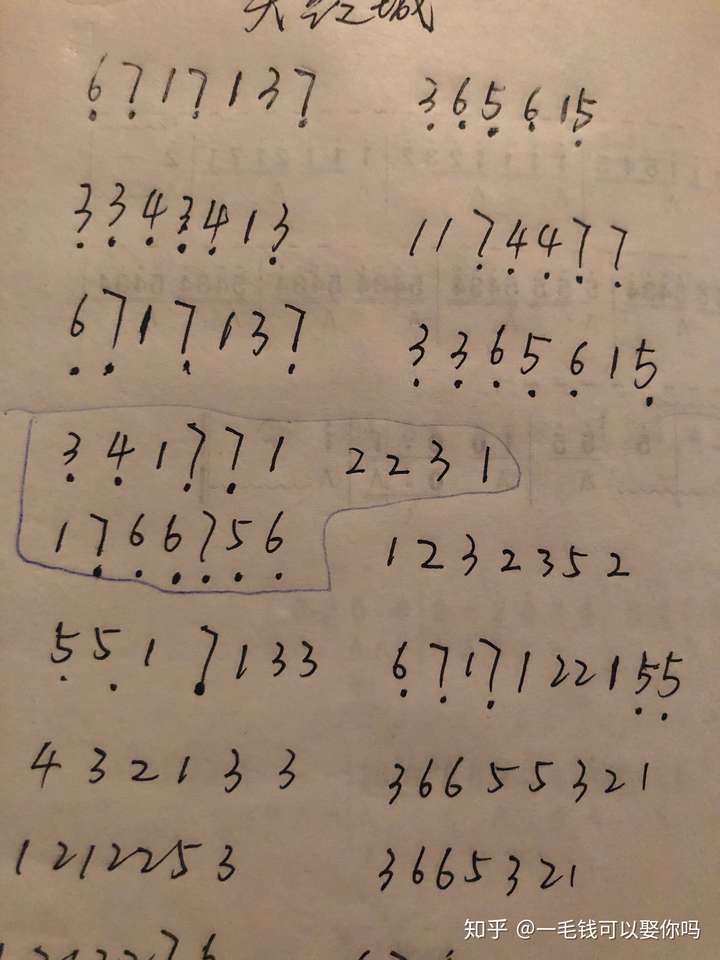 城
6717137 365615
3343413 1174477
6717137 3365615
341771 2231
1766756 1232352
5517133 6717122155
432133 36655321
1212253 3665321
知乎 @一毛钱可以娶你吗